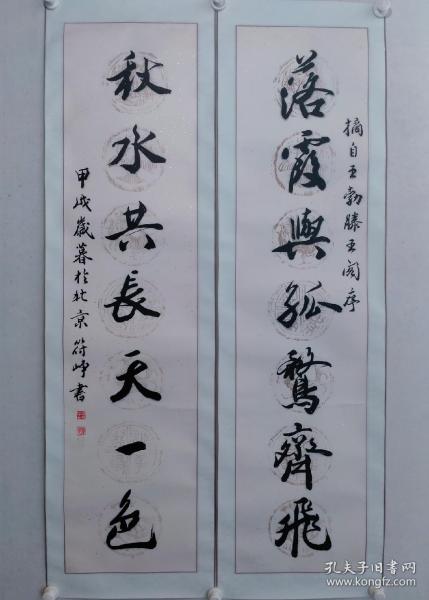 摘自王勃滕王阁序
落霞與孤鶩齊飛
秋水共長天一色
甲戌歲暮於北京符崢書
孔夫子旧书网
www.kongfz.com